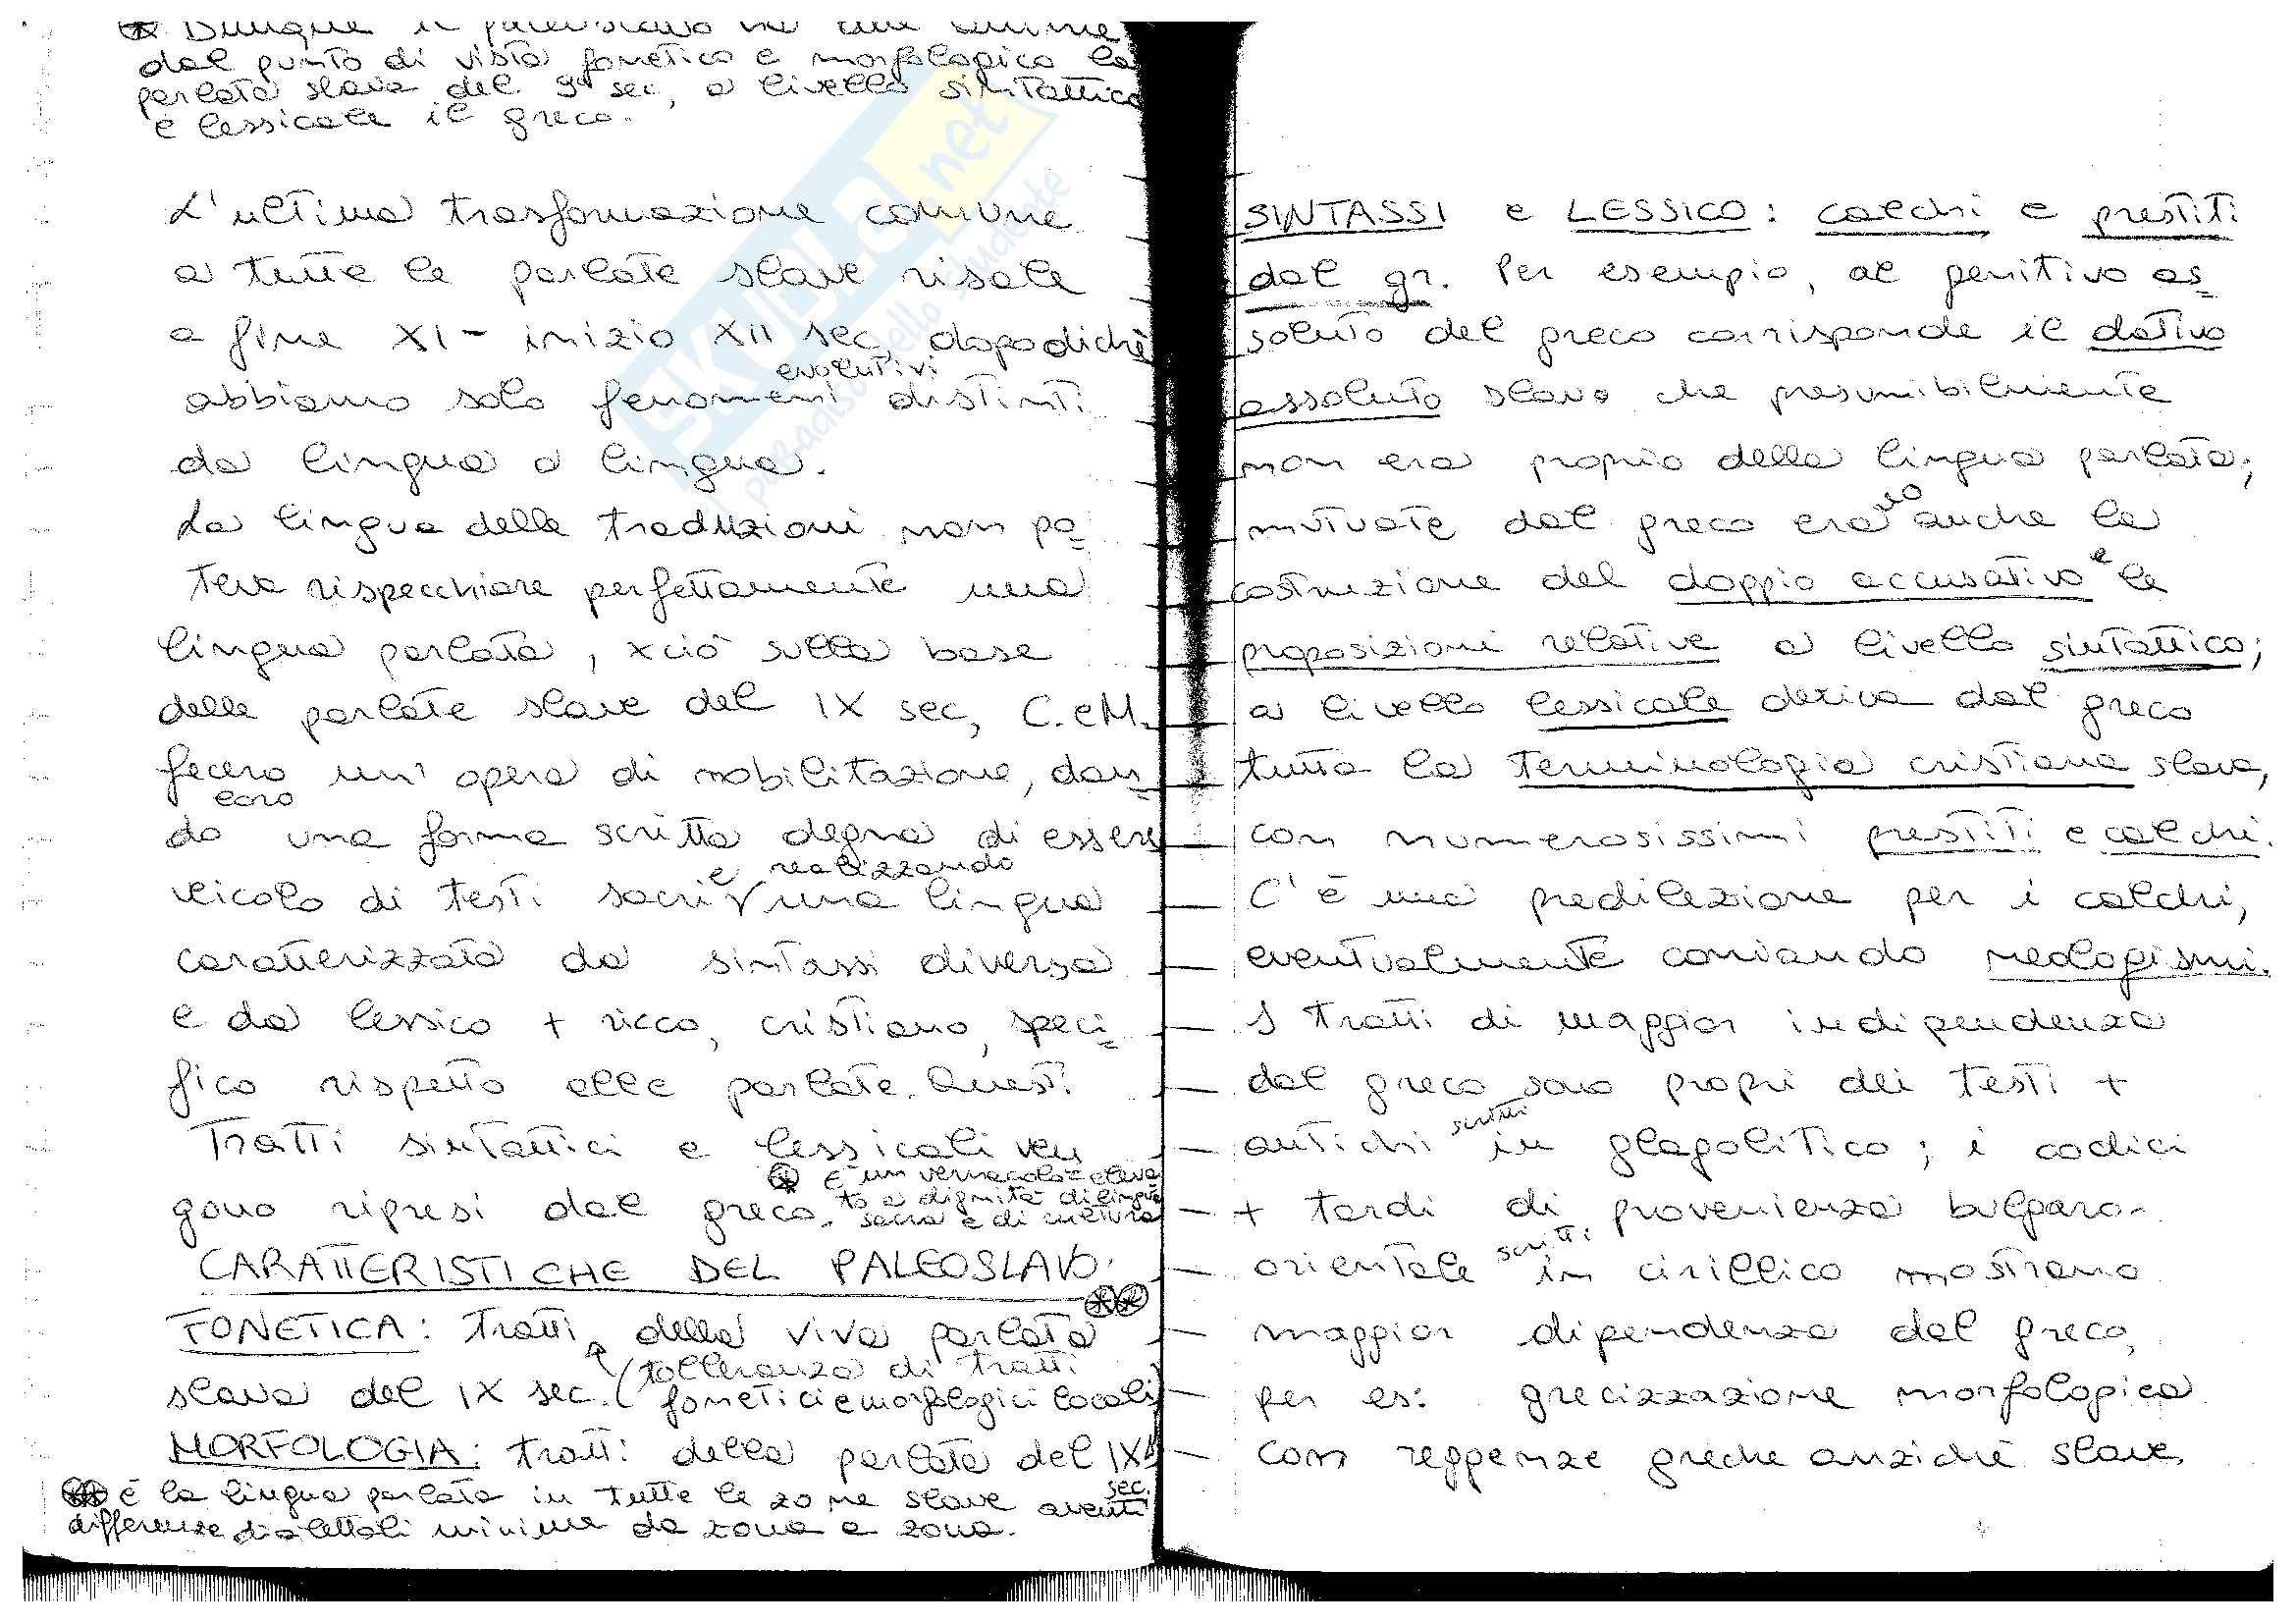 ⊛ Dunque il paleoslavo ha come
dal punto di vista fonetico e morfologico la
parlata slava del 9° sec, a livello sintattico
e lessicale il greco.
L'ultima trasformazione comune
a tutte le parlate slave risale
a fine XI - inizio XII sec, dopodiché
evolutivi
abbiamo solo fenomeni distinti
da lingua a lingua.
La lingua delle traduzioni non po=
teva rispecchiare perfettamente una
lingua parlata, xciò sulla base
delle parlate slave del IX sec, C. e M.
fecero un'opera di mobilitazione, dan=
loro
do una forma scritta degna di essere
e realizzando
veicolo di testi sacri una lingua
caratterizzata da sintassi diversa
e da lessico + ricco, cristiano, speci=
fico rispetto alle parlate. Questi
tratti sintattici e lessicali ven
gono ripresi dal greco.
⊛ È un vernacolo eleva
to a dignità di lingua
sacra e di cultura
CARATTERISTICHE DEL PALEOSLAVO.
⊛⊛
FONETICA: tratti della viva parlata
slava del IX sec. (tolleranza di tratti
fonetici e morfologici locali)
MORFOLOGIA: tratti della parlata del IX
sec.
⊛⊛ è la lingua parlata in tutte le zone slave aventi
differenze dialettali minime da zona a zona.
SINTASSI e LESSICO: calchi e prestiti
dal gr. Per esempio, al genitivo as=
soluto del greco corrisponde il dativo
assoluto slavo che presumibilmente
non era proprio della lingua parlata;
mutuate dal greco erano anche la
costruzione del doppio accusativo e le
proposizioni relative a livello sintattico;
a livello lessicale deriva dal greco
tutta la terminologia cristiana slava,
con numerosissimi prestiti e calchi.
C'è una predilezione per i calchi,
eventualmente coniando neologismi.
I tratti di maggior indipendenza
dal greco sono propri dei testi +
antichi scritti in glagolitico; i codici
+ tardi di provenienza bulgaro-
orientale scritti in cirillico mostrano
maggior dipendenza dal greco,
per es: grecizzazione morfologica
con reggenze greche anziché slave
SKUOLA.net